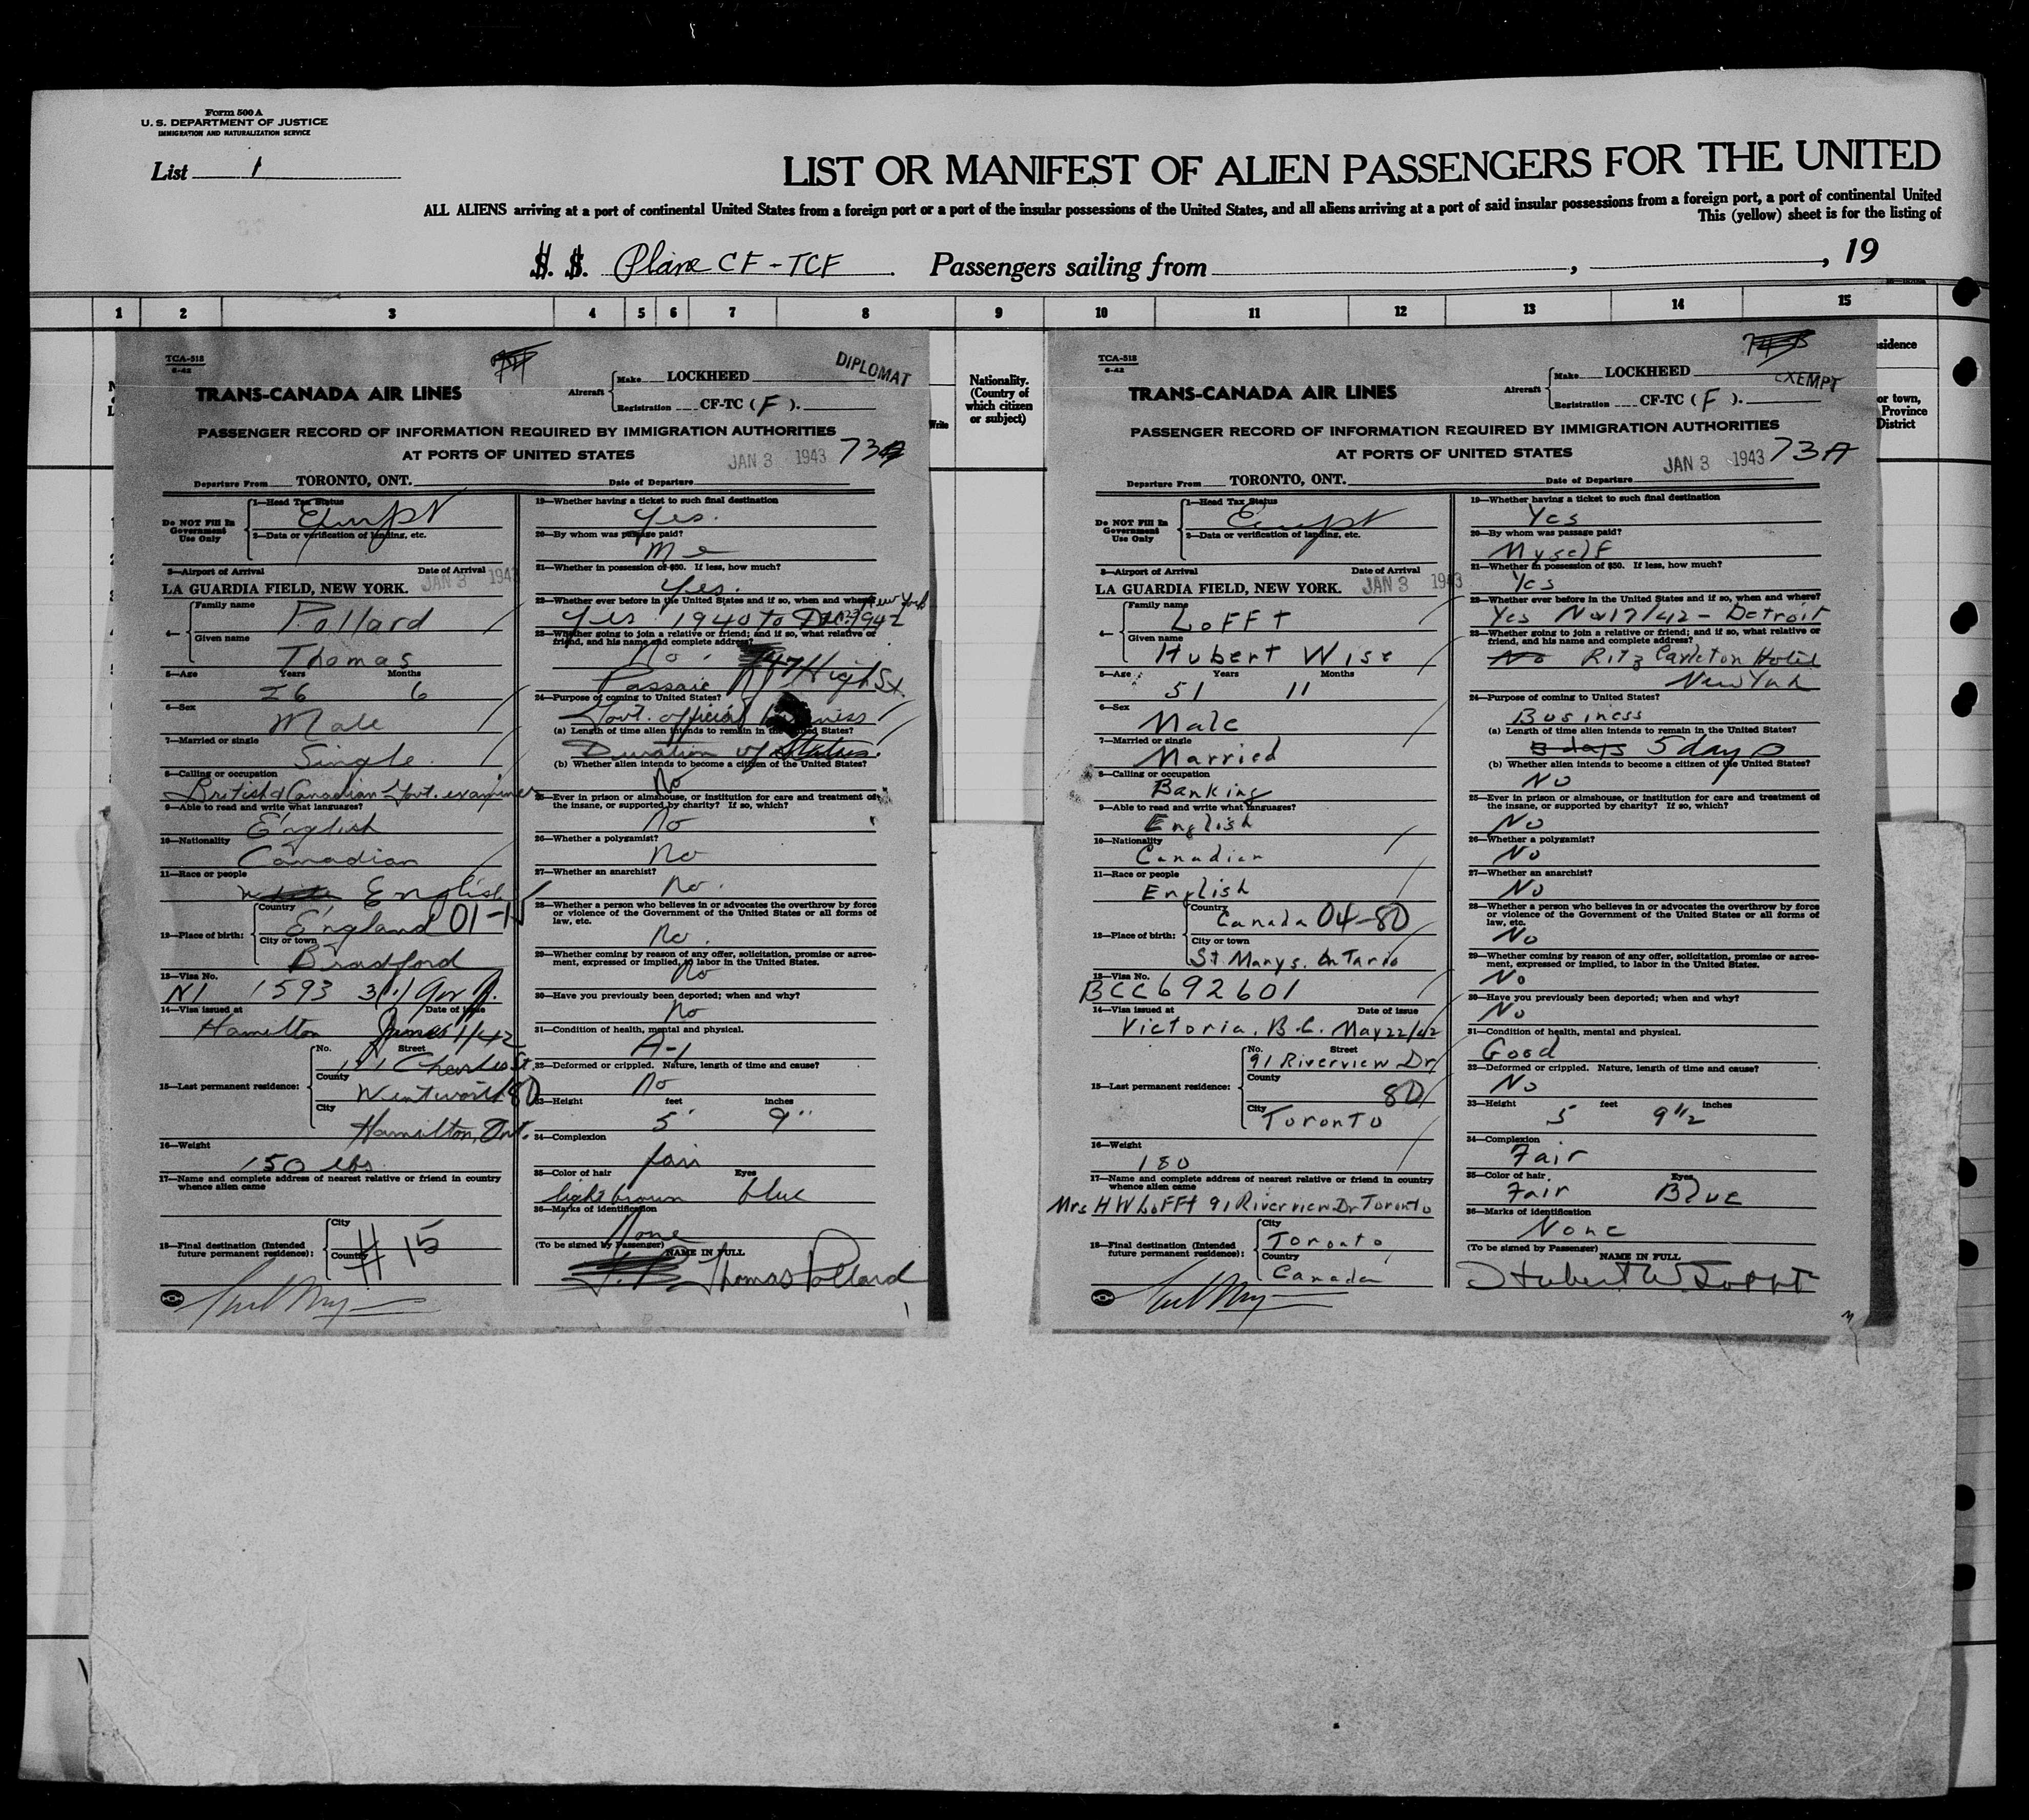 Form 500 A
U. S. DEPARTMENT OF JUSTICE
IMMIGRATION AND NATURALIZATION SERVICE
List 1
LIST OR MANIFEST OF ALIEN PASSENGERS FOR THE UNITED
ALL ALIENS arriving at a port of continental United States from a foreign port or a port of the insular possessions of the United States, and all aliens arriving at a port of said insular possessions from a foreign port, a port of continental United
This (yellow) sheet is for the listing of
S. S. Plane CF-TCF Passengers sailing from , , 19
1 2 3 4 5 6 7 8 9 10 11 12 13 14 15
TCA-518
6-42
DIPLOMAT
TRANS-CANADA AIR LINES
Aircraft Make LOCKHEED
Registration CF-TC (F).
PASSENGER RECORD OF INFORMATION REQUIRED BY IMMIGRATION AUTHORITIES
AT PORTS OF UNITED STATES
JAN 3 1943 73A
Departure From TORONTO, ONT. Date of Departure
Do NOT Fill In Government Use Only
1—Head Tax Status
Exempt
2—Data or verification of landing, etc.
3—Airport of Arrival Date of Arrival
LA GUARDIA FIELD, NEW YORK. JAN 3 1943
4— Family name
Pollard
Given name
Thomas
5—Age Years Months
26 6
6—Sex
Male
7—Married or single
Single
8—Calling or occupation
British & Canadian Govt. examiner
9—Able to read and write what languages?
English
10—Nationality
Canadian
11—Race or people
White English
12—Place of birth: Country
England 01-
City or town
Bradford
13—Visa No.
NI 1593 3(1)
14—Visa issued at Date of issue
Hamilton 1/42
15—Last permanent residence: No. Street
Charles St.
County
Wentworth 80
City
Hamilton, Ont.
16—Weight
150 lbs
17—Name and complete address of nearest relative or friend in country whence alien came
18—Final destination (Intended future permanent residence): City
Country
# 15
19—Whether having a ticket to such final destination
Yes.
20—By whom was passage paid?
Me
21—Whether in possession of $50. If less, how much?
Yes.
22—Whether ever before in the United States and if so, when and where?
New York
Yes 1940 to Dec 1942
23—Whether going to join a relative or friend; and if so, what relative or friend, and his name and complete address?
No. 47 High St.
Passaic NJ
24—Purpose of coming to United States?
Govt. official business
(a) Length of time alien intends to remain in the United States?
Duration of Status.
(b) Whether alien intends to become a citizen of the United States?
No
25—Ever in prison or almshouse, or institution for care and treatment of the insane, or supported by charity? If so, which?
No
26—Whether a polygamist?
No
27—Whether an anarchist?
No.
28—Whether a person who believes in or advocates the overthrow by force or violence of the Government of the United States or all forms of law, etc.
No.
29—Whether coming by reason of any offer, solicitation, promise or agreement, expressed or implied, to labor in the United States.
No
30—Have you previously been deported; when and why?
No
31—Condition of health, mental and physical.
A-1
32—Deformed or crippled. Nature, length of time and cause?
No
33—Height feet inches
5' 9"
34—Complexion
fair
35—Color of hair Eyes
light brown blue
36—Marks of identification
None
(To be signed by Passenger) NAME IN FULL
Thomas Pollard
Nationality.
(Country of
which citizen
or subject)
Write
TCA-518
6-42
EXEMPT
TRANS-CANADA AIR LINES
Aircraft Make LOCKHEED
Registration CF-TC (F).
PASSENGER RECORD OF INFORMATION REQUIRED BY IMMIGRATION AUTHORITIES
AT PORTS OF UNITED STATES
JAN 3 1943 73A
Departure From TORONTO, ONT. Date of Departure
Do NOT Fill In Government Use Only
1—Head Tax Status
Exempt
2—Data or verification of landing, etc.
3—Airport of Arrival Date of Arrival
LA GUARDIA FIELD, NEW YORK. JAN 3 1943
4— Family name
LOFFT
Given name
Hubert Wise
5—Age Years Months
51 11
6—Sex
Male
7—Married or single
Married
8—Calling or occupation
Banking
9—Able to read and write what languages?
English
10—Nationality
Canadian
11—Race or people
English
12—Place of birth: Country
Canada 04-80
City or town
St Marys. Ontario
13—Visa No.
BCC692601
14—Visa issued at Date of issue
Victoria, B.C. May 22/42
15—Last permanent residence: No. Street
91 Riverview Dr
County
80
City
Toronto
16—Weight
180
17—Name and complete address of nearest relative or friend in country whence alien came
Mrs HW LoFFt 91 Riverview Dr Toronto
18—Final destination (Intended future permanent residence): City
Toronto
Country
Canada
19—Whether having a ticket to such final destination
Yes
20—By whom was passage paid?
Myself
21—Whether in possession of $50. If less, how much?
Yes
22—Whether ever before in the United States and if so, when and where?
Yes Nov 17/42 - Detroit
23—Whether going to join a relative or friend; and if so, what relative or friend, and his name and complete address?
No Ritz Carleton Hotel
New York
24—Purpose of coming to United States?
Business
(a) Length of time alien intends to remain in the United States?
5 days
(b) Whether alien intends to become a citizen of the United States?
No
25—Ever in prison or almshouse, or institution for care and treatment of the insane, or supported by charity? If so, which?
No
26—Whether a polygamist?
No
27—Whether an anarchist?
No
28—Whether a person who believes in or advocates the overthrow by force or violence of the Government of the United States or all forms of law, etc.
No
29—Whether coming by reason of any offer, solicitation, promise or agreement, expressed or implied, to labor in the United States.
No
30—Have you previously been deported; when and why?
No
31—Condition of health, mental and physical.
Good
32—Deformed or crippled. Nature, length of time and cause?
No
33—Height feet inches
5 9 1/2
34—Complexion
Fair
35—Color of hair. Eyes
Fair Blue
36—Marks of identification
None
(To be signed by Passenger) NAME IN FULL
Hubert W Lofft
sidence
or town,
Province
District